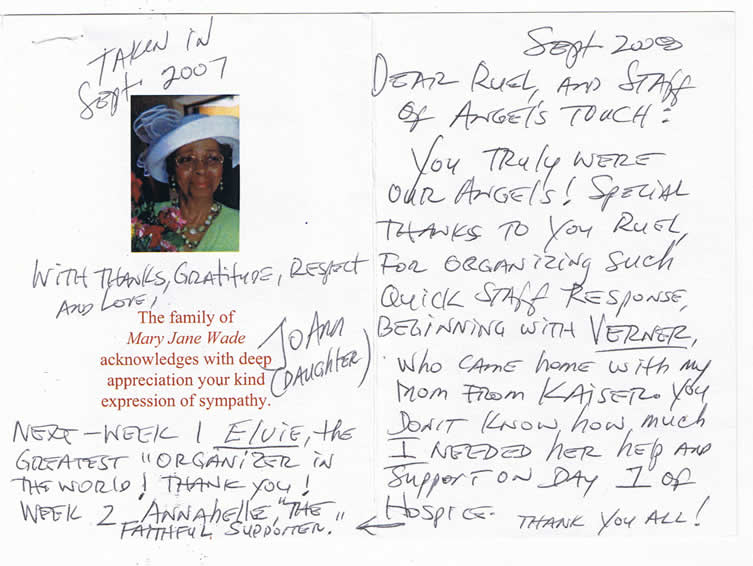 TAKEN IN
Sept. 2007
WITH THANKS, GRATITUDE, RESPECT
AND LOVE,
The family of
Mary Jane Wade
acknowledges with deep
appreciation your kind
expression of sympathy.
JO ANN
(DAUGHTER)
NEXT-WEEK 1 ELVIE, the
GREATEST "ORGANIZER IN
THE WORLD! THANK YOU!
WEEK 2 ANNABELLE, "THE
FAITHFUL SUPPORTER."
Sept 2008
DEAR RUEL, AND STAFF
OF ANGEL'S TOUCH:
YOU TRULY WERE
OUR ANGEL'S! SPECIAL
THANKS TO YOU RUEL,
FOR ORGANIZING SUCH
QUICK STAFF RESPONSE,
BEGINNING WITH VERNER,
WHO CAME HOME WITH MY
MOM FROM KAISER. YOU
DON'T KNOW how much
I NEEDED her help AND
SUPPORT ON DAY 1 OF
HOSPICE. THANK YOU ALL!